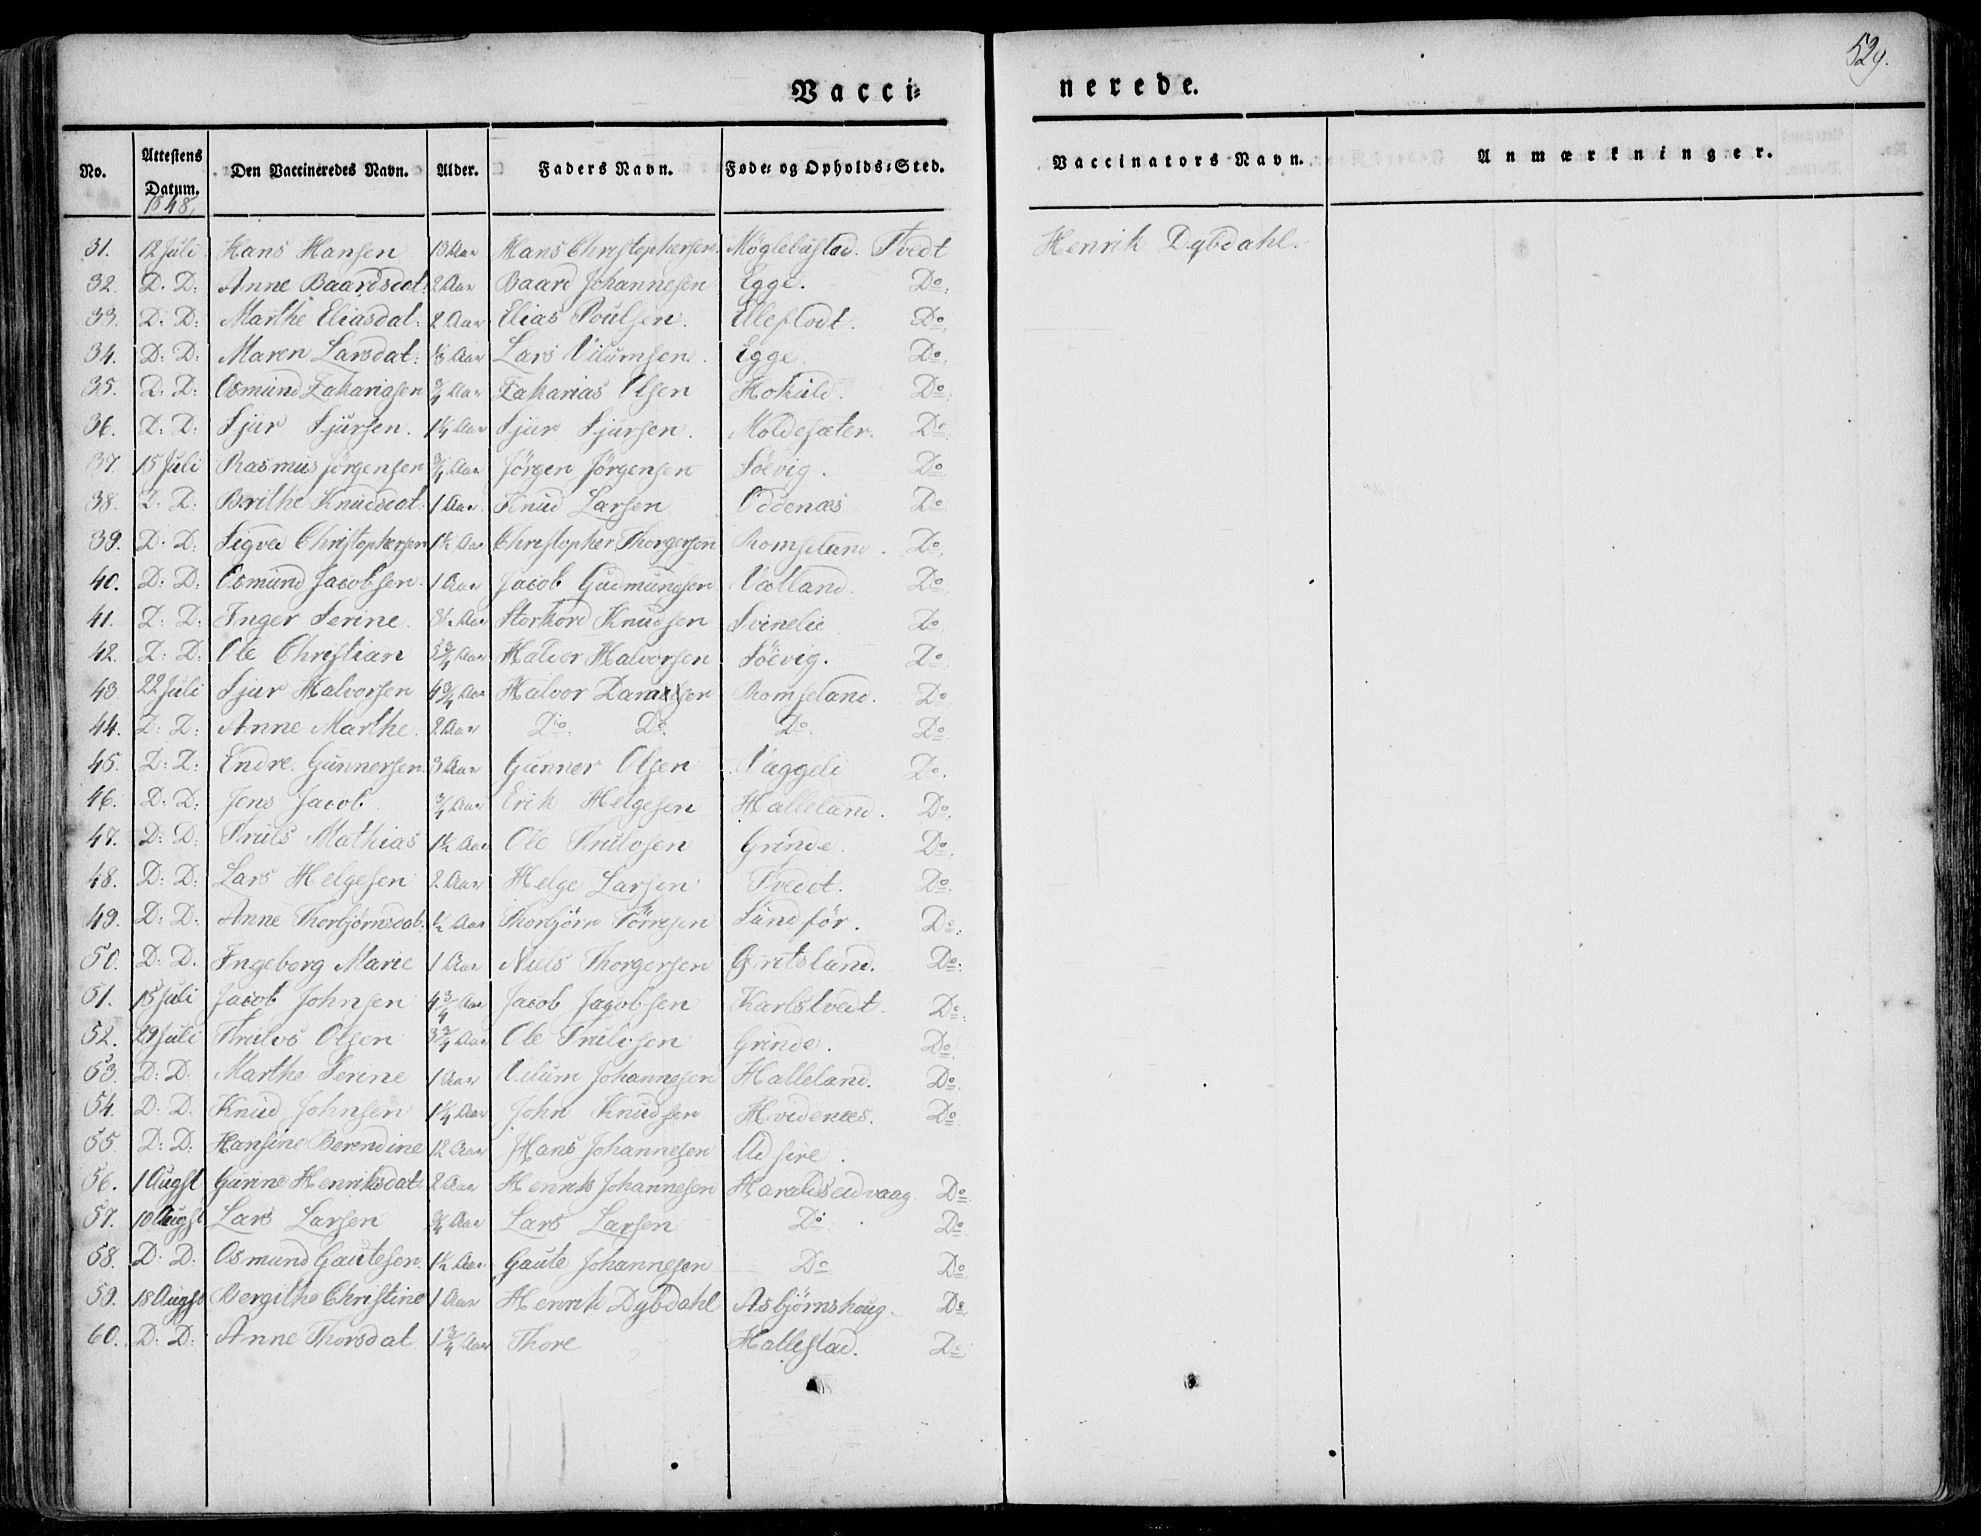 529.
Vacci= nerede.
No. Attestens Datum. Den Vaccineredes Navn. Alder. Faders Navn. Føde= og Opholds=Sted. Vaccinators Navn. Anmærkninger.
1848.
31. 12 Juli Hans Hansen 13 Aar Hans Christophersen. Møglebustad. Tvedt Henrik Dybdahl.
32. D. D: Anne Baardsdat: 2 Aar Baard Johannesen Egge. Do.
33. D: D: Marthe Eliasdat: 2 Aar Elias Poulsen. Uleflodt. Do.
34. D: D: Maren Larsdat: Aar Lars Vilumsen. Egge. Do.
35. D: D: Osmund Zakariasen 3/4 Aar Zakarias Olsen Hokuld. Do.
36. D: D: Sjur Sjursen. 1 1/4 Aar Sjur Sjursen. Moldesæter. Do.
37. 15 Juli Rasmus Jörgensen 3/4 Aar Jörgen Jörgensen Söevig. Do
38. D. D: Brithe Knudsdat: 1 Aar Knud Larsen Oddenæs Do
39. D. D: Sigved Christophersen 1 1/2 Aar Christopher Thorgersen Romseland. Do.
40. D: D: Osmund Jacobsen. 1 Aar Jacob Gudmundsen Vatland. Do.
41. D: D: Inger Serine. 3 1/2 Aar Storkord Knudsen Svinelie Do
42. D: D: Ole Christian 5 3/4 Aar Halvor Halvorsen Söevig. Do.
43. 22 Juli Sjur Halvorsen 4 3/4 Aar Halvor Danielsen Romseland. Do
44. D: D: Anne Marthe. 2 Aar Do. Do. Do. Do.
45. D: D: Endre Gunnersen. 3 Aar Gunner Olsen Vaggeli Do.
46. D. D: Jens Jacob. 3/4 Aar Erik Helgesen Halleland. Do.
47. D: D: Truls Mathias 1 1/2 Aar Ole Trulssen Grinde. Do.
48. D: D: Lars Helgesen 2 Aar Helge Larsen Tvedt. Do.
49. D: D. Anne Thorbjörnsdat. 1/2 Aar Thorbjörn Törresen Sundför. Do.
50. D: D. Ingeborg Marie 1 Aar Niels Thorgersen Gritsland. Do.
51. 15 Juli Jacob Johnsen 4 3/4 Aar Jacob Jacobsen Karlstvedt. Do.
52. 29 Juli Trulvs Olsen 3 3/4 Aar Ole Trulssen Grinde. Do.
53. D: D. Marthe Serine 1 Aar Vilum Johannesen Halleland. Do.
54. D: D. Knud Johnsen 1 1/4 Aar John Knudsen Hvidenæs. Do.
55. D: D. Hansine Berendine 12 Aar Hans Johannesen Udsire.
56. 1 Augst Gurine Henriksdat: 2 Aar Henrik Johannesen Haraldseidvaag. Do.
57. 10 Augst Lars Larsen 3/4 Aar Lars Larsen Do. Do.
58. D. D. Osmund Gautesen. 1 1/2 Aar Gaute Johannesen Do Do.
59. 18 Augst Bergithe Christine 1 Aar Henrik Dybdahl Asbjörnshoug. Do.
60. D: D: Anne Thorsdat 1 3/4 Aar Thore Hallestad. Do.